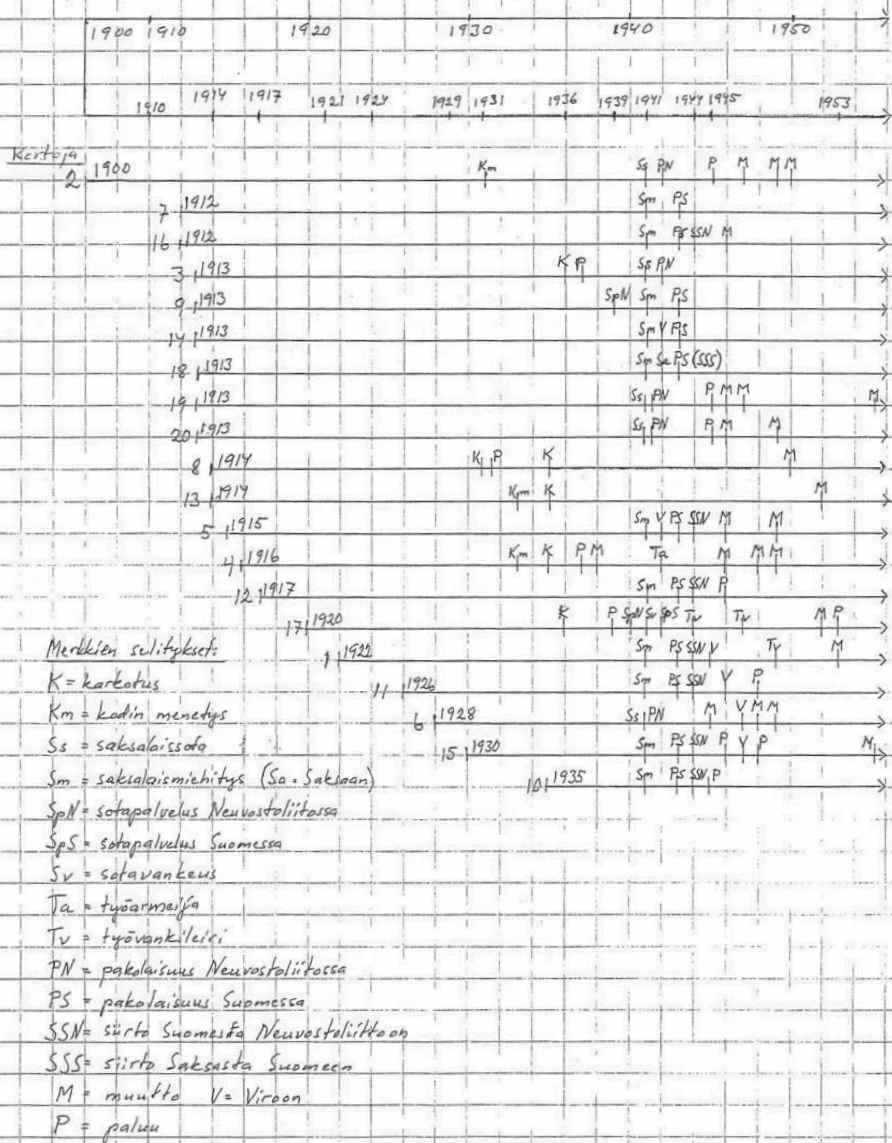 1900 1910 1920 1930 1940 1950
1910 1914 1917 1921 1924 1929 1931 1936 1939 1941 1944 1945 1953
Kertoja
2 1900 Km Ss PN P M M M
7 1912 Sm PS
16 1912 Sm PS SSN M
3 1913 K P Ss PN
9 1913 SpN Sm PS
14 1913 Sm V PS
18 1913 Sm Sa PS (SSS)
19 1913 Ss PN P M M M
20 1913 Ss PN P M M
8 1914 K P K M
13 1914 Km K M
5 1915 Sm V PS SSN M M
4 1916 Km K P M Ta M M M
12 1917 Sm PS SSN P
17 1920 K P SpN Sv SpS Tv Tv M P
1 1922 Sm PS SSN V Tv M
11 1926 Sm PS SSN V P
6 1928 Ss PN M V M M
15 1930 Sm PS SSN P V P M
10 1935 Sm PS SSN P
Merkkien selitykset:
K = karkotus
Km = kodin menetys
Ss = saksalaissota
Sm = saksalaismiehitys (Sa = Saksaan)
SpN = sotapalvelus Neuvostoliitossa
SpS = sotapalvelus Suomessa
Sv = sotavankeus
Ta = työarmeija
Tv = työvankileiri
PN = pakolaisuus Neuvostoliitossa
PS = pakolaisuus Suomessa
SSN = siirto Suomesta Neuvostoliittoon
SSS = siirto Saksasta Suomeen
M = muutto V = Viroon
P = paluu